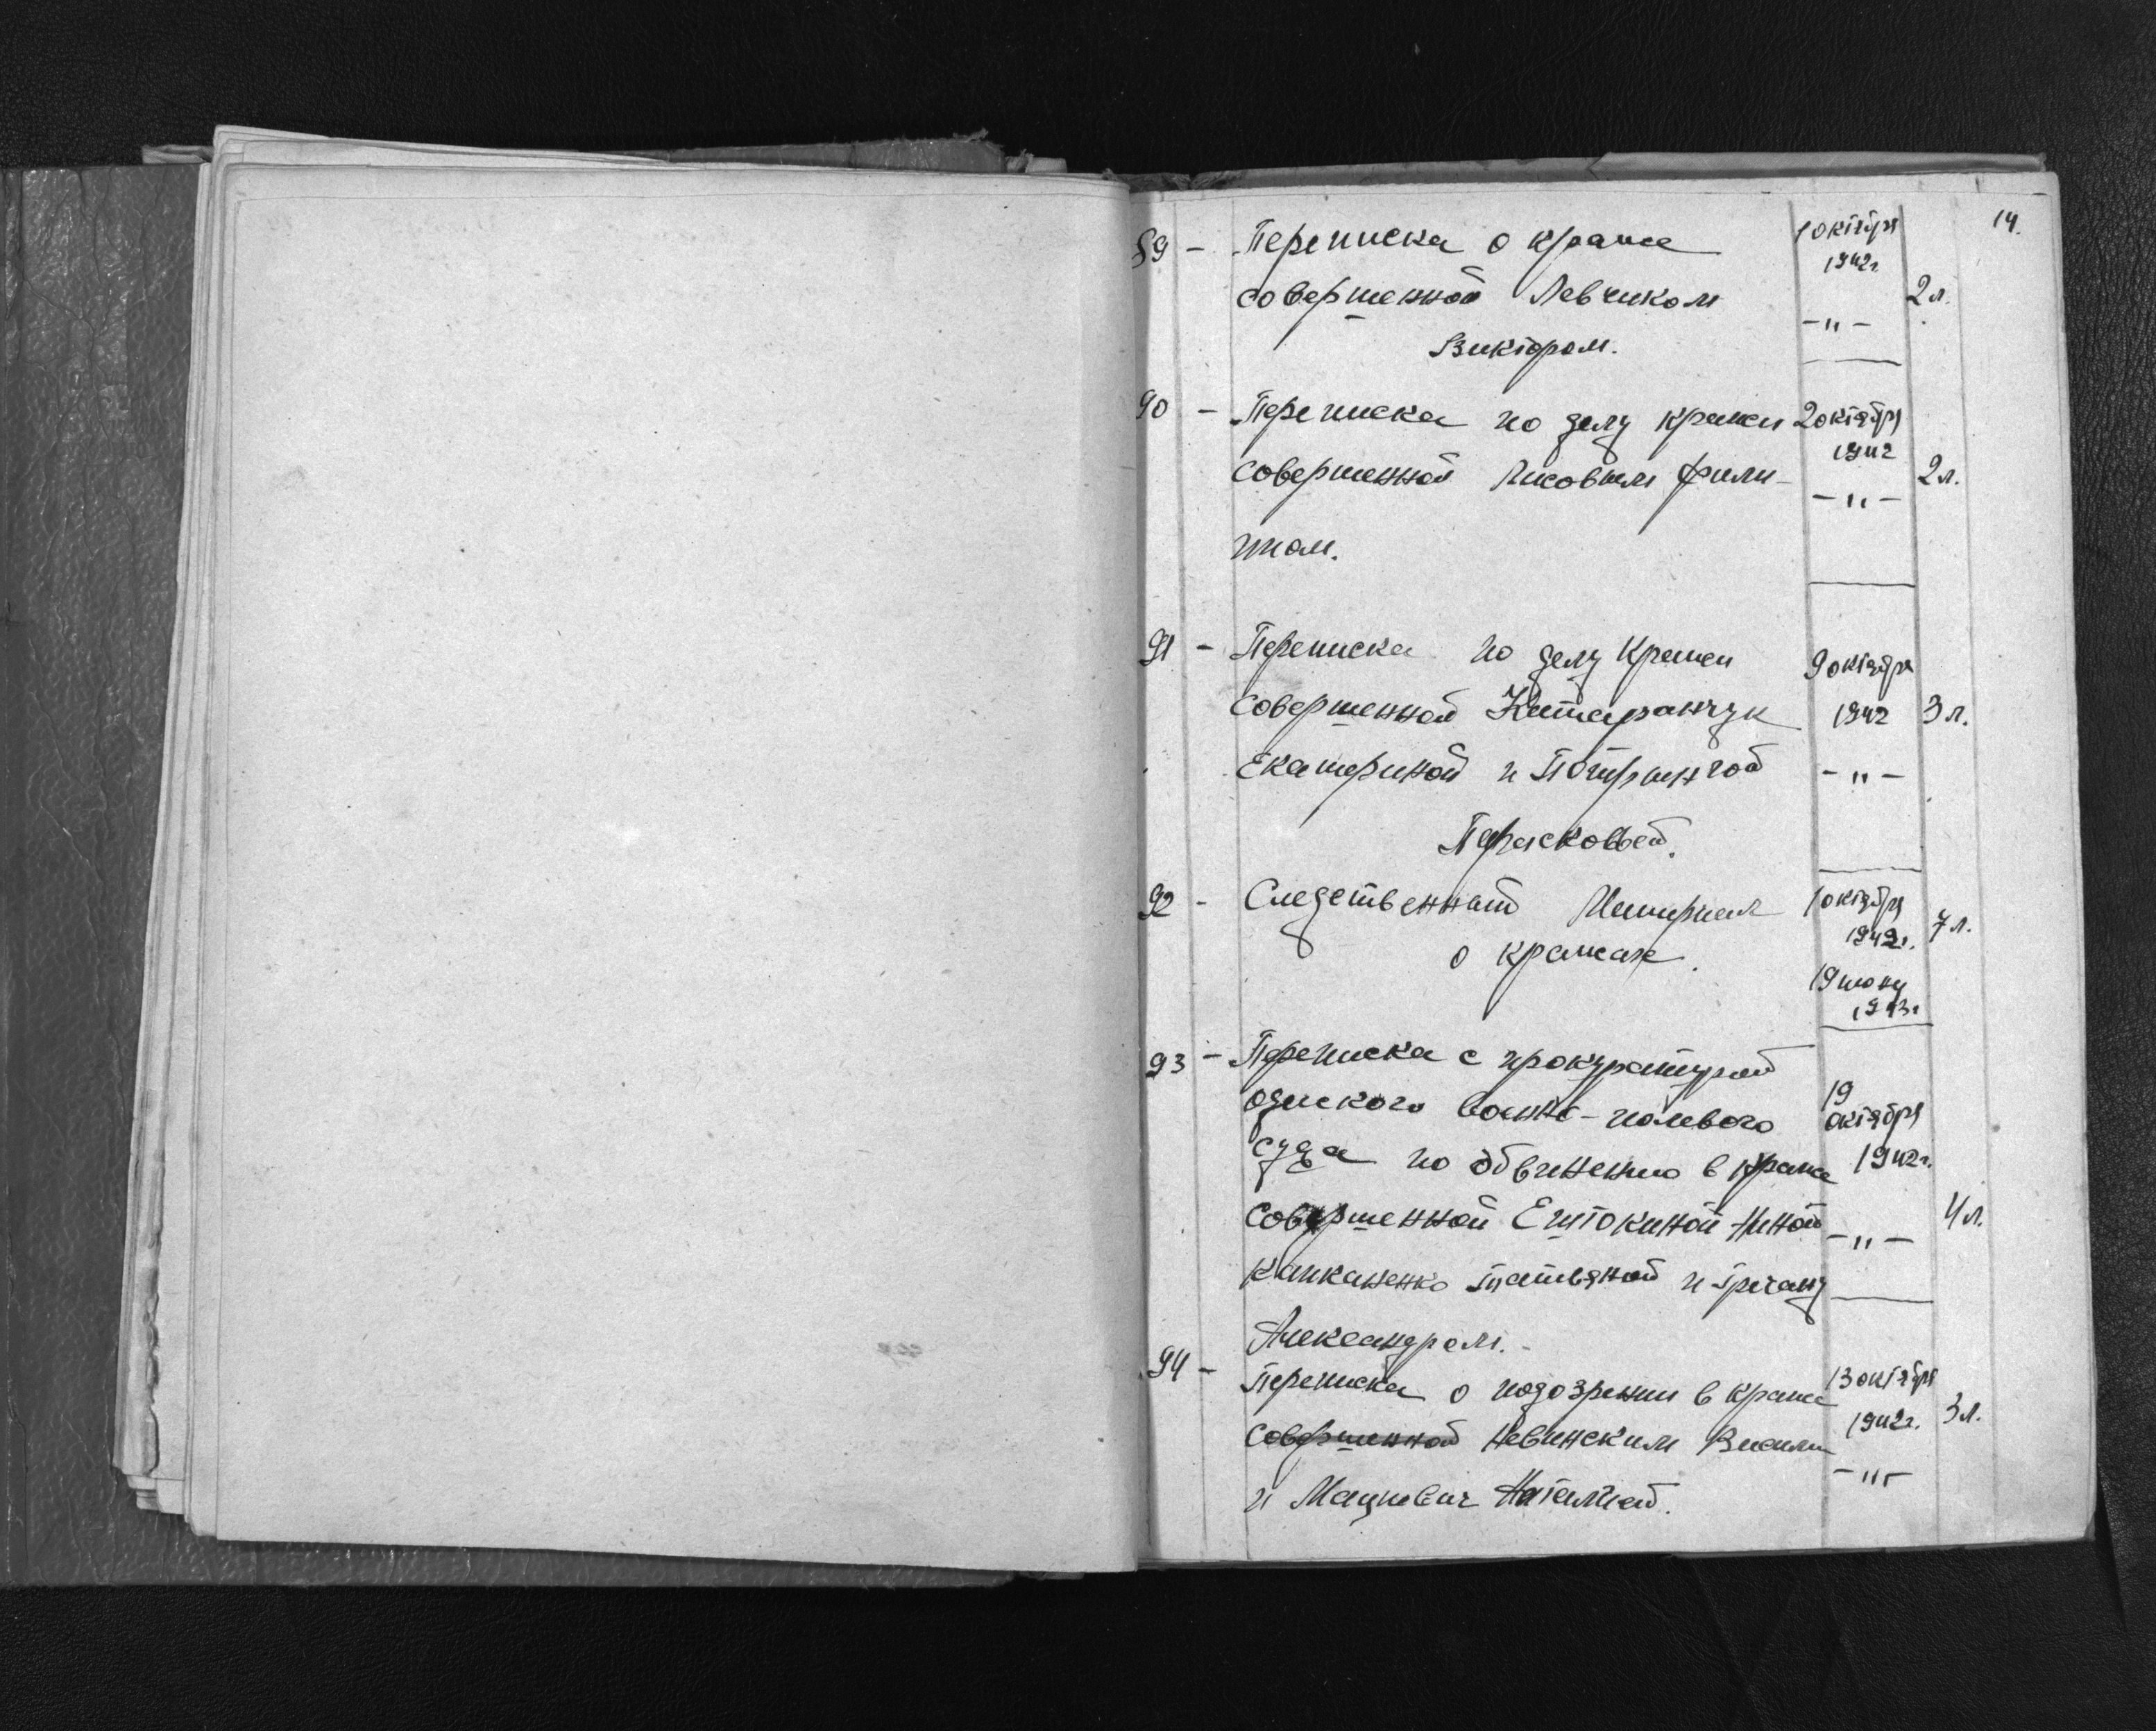 14.
89 - Переписка о краже 1 октября
1942г.
совершенной Левчиком 2 л.
- " -
Виктором.
90 - Переписка по делу кражи 2 октября
1942
совершенной Лисовым Фили- 2 л.
- " -
пом.
91 - Переписка по делу кражи 9 октября
совершенной 1942 3 л.
Екатериной и - " -
Парасковьей.
92 - Следственный Материал 1 октября
1942г. 7 л.
о кражах.
19 июня
1943г
93 - Переписка с прокуратурой
19
одесского военно-полевого октября
суда по обвинению в краже 1942г.
совершенной Ештокиной Ниной 4 л.
- " -
Капканенко Татьяной и Гречану
Александром. -
94 - Переписка о подозрении в краже 13 октября
1942г. 3 л.
совершенной Невинским Васили
- " -
и Мацкевич Наталией.